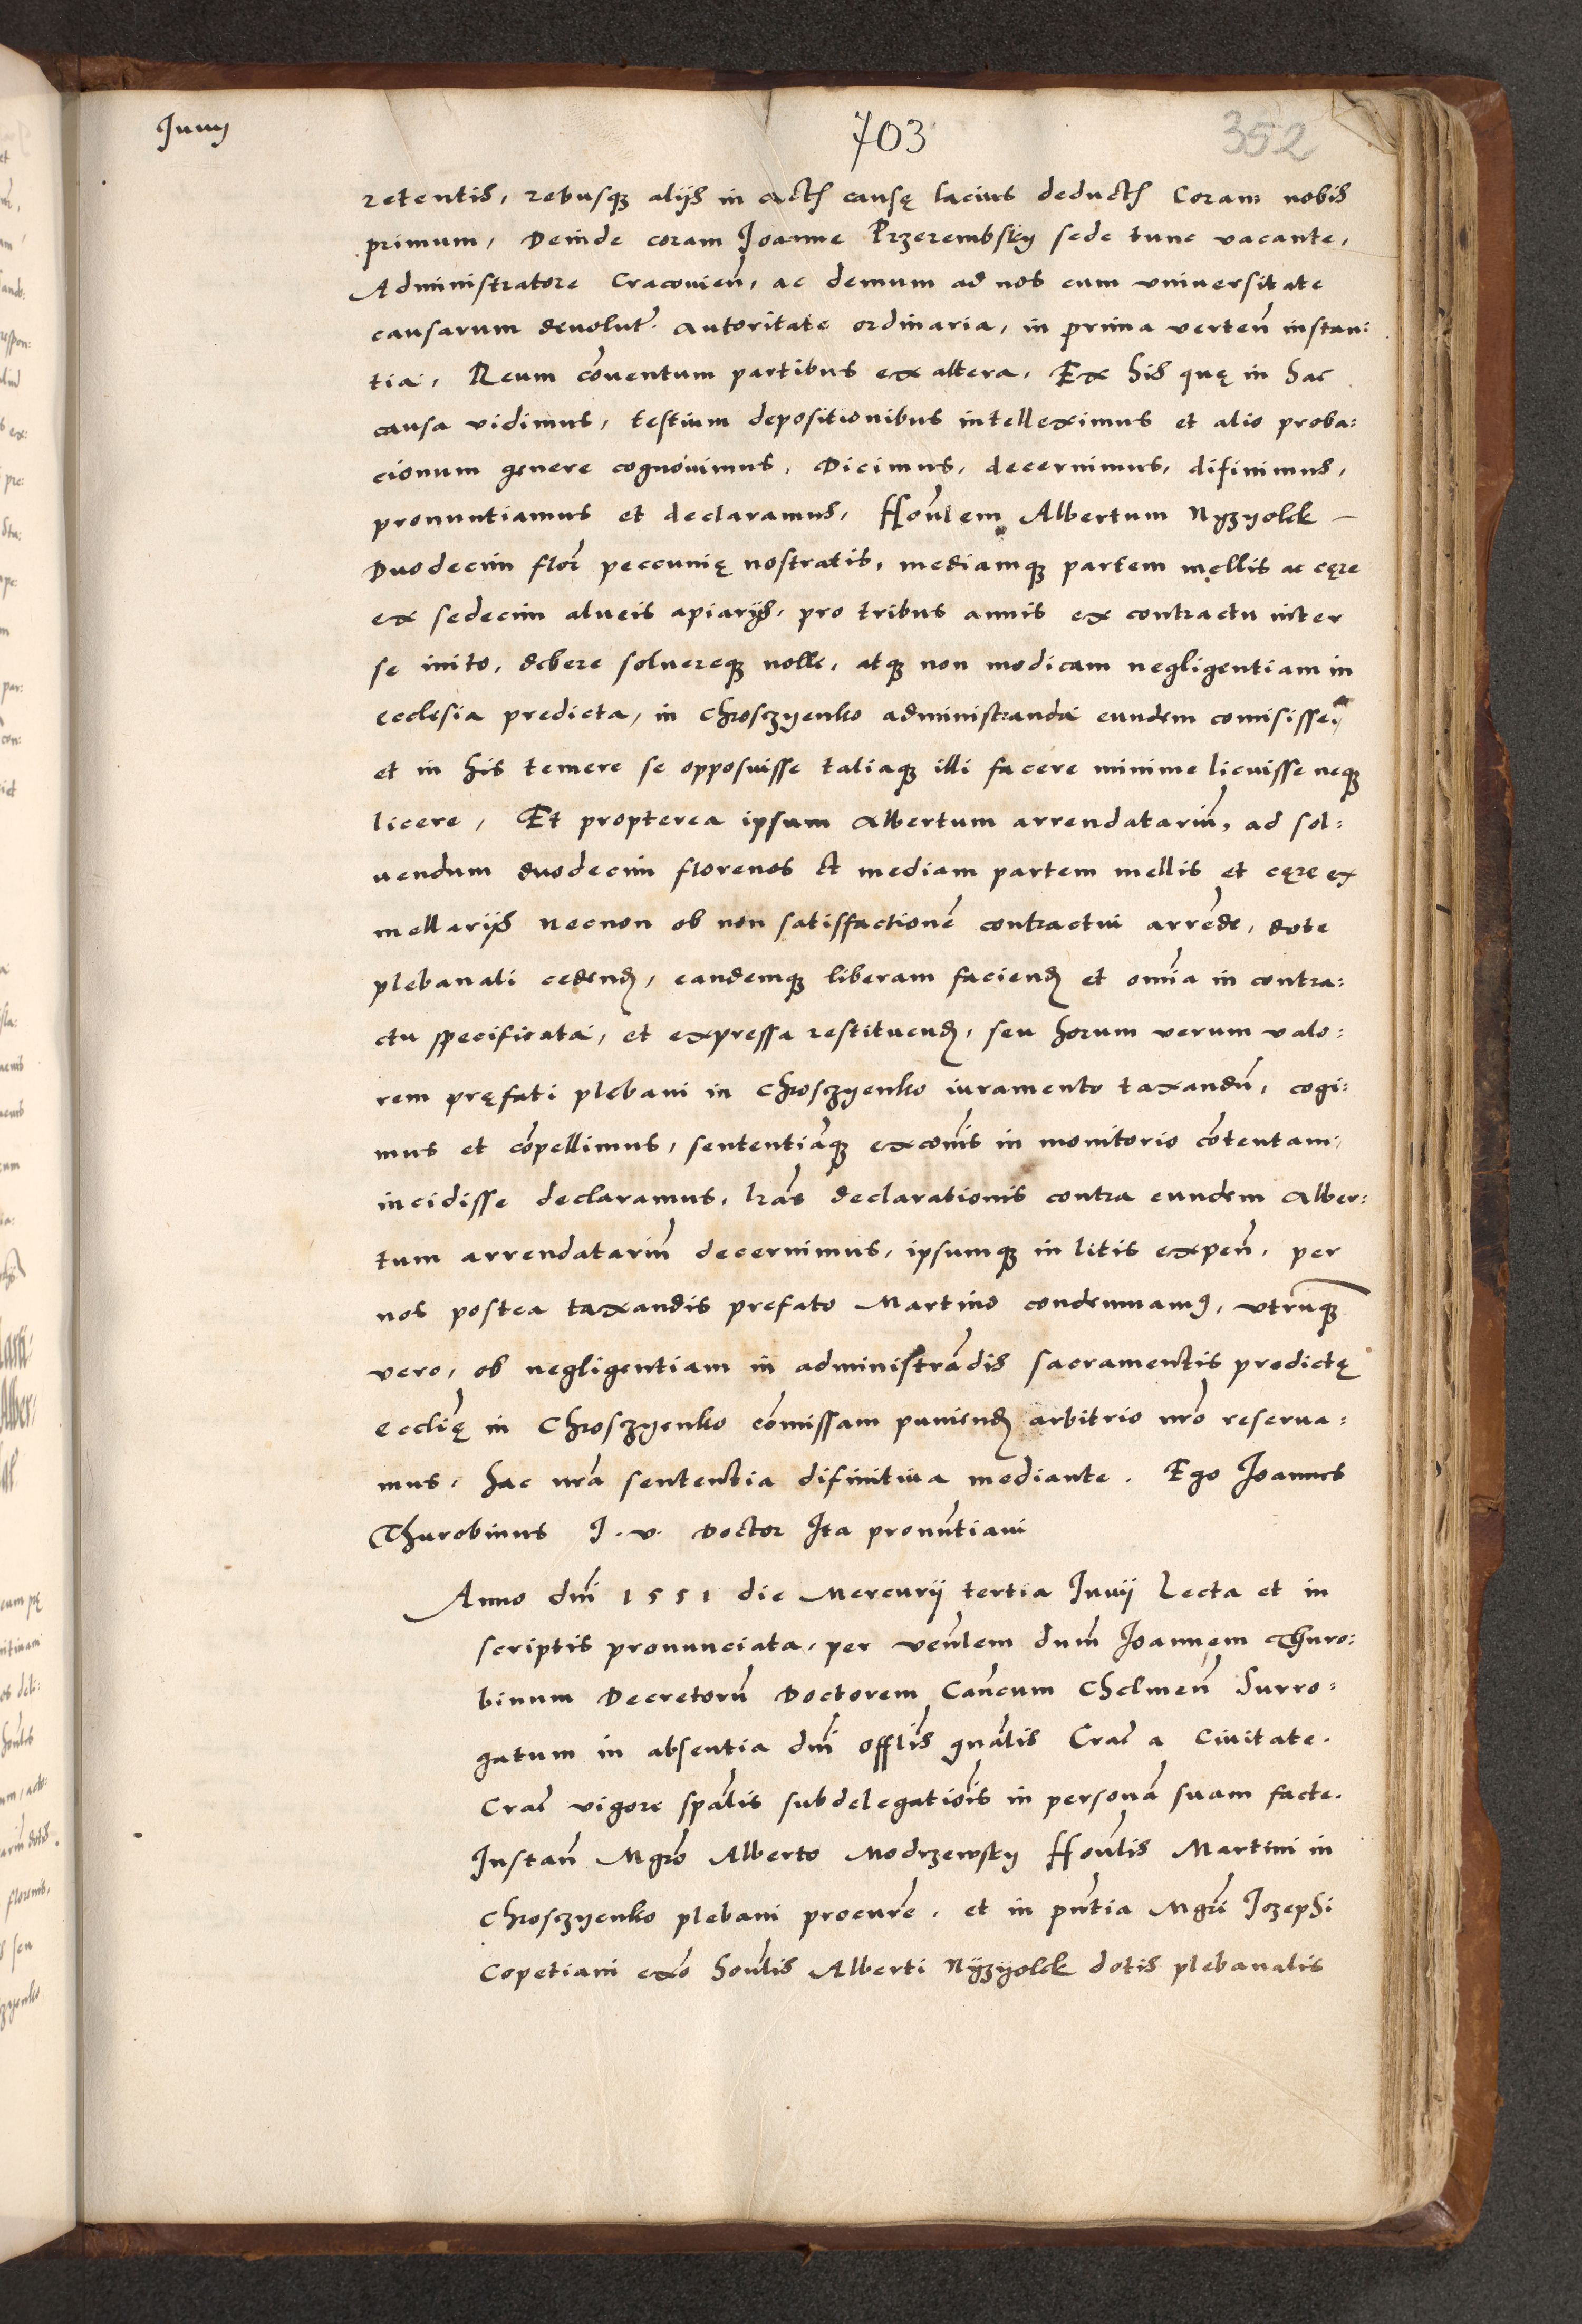 Junij
703
352
retentis, rebusqȝ alijs in actis causę lacius deductis Coram nobis
primum, Deinde coram Joanne Przerembsky sede tunc vacante,
Administratore Cracovien̄, ac demum ad nos cum vniuersitate
causarum deuolut̄. autoritate ordinaria, in prima verten̄ instan:
tia, Reum cōuentum partibus ex altera, Ex his quę in hac
causa vidimus, testium depositionibus intelleximus et alio proba:
cionum genere cognouimus, Dicimus, decernimus, difinimus,
pronuntiamus et declaramus, Hon̄lem Albertum Nyzyolek –
Duodecim flor̄ peccunię nostratis, mediamqȝ partem mellis ac cęre
ex sedecim alueis apiarijs, pro tribus annis ex contractu inter
se inito, debere soluereqȝ nolle, atqȝ non modicam negligentiam in
ecclesia predicta, in Chroszyenko administranda eundem comisisse,
et in his temere se opposuisse taliaqȝ illi facere minime licuisse neqȝ
licere, Et propterea ipsum Albertum arrendatariū, ad sol:
uendum duodecim florenos et mediam partem mellis et cęre ex
mellarijs necnon ob non satisfactionē contractui arrēde, dote
plebanali cedend̄, eandemqȝ liberam faciend̄ et om̄ia in contra:
ctu specificata, et expressa restituend̄, seu horum verum valo:
rem pręfati plebani in Chroszyenko iuramento taxandū, cogi:
mus et cōpellimus, sententiāqȝ excom̄is in monitorio cōtentam
incidisse declaramus, l̄ras declarationis contra eundem Alber:
tum arrendatariū decernimus, ipsumqȝ in litis expen̄, per
nos postea taxandis prefato Martino condemnamꝰ, vtrūqȝ
vero, ob negligentiam in administrādis sacramentis predictę
eccl̄ię in Chroszyenko cōmissam puniend̄ arbitrio nr̄o reserua:
mus, hac nr̄a sententia difinitiua mediante. Ego Joannes
Thurobinus J. v. Doctor Ita pronūtiaui
Anno dn̄i 1551 die Mercurij tertia Junij Lecta et in
scriptis pronunciata, per ven̄lem dnūm Joannem Thuro:
binum Decretorū Doctorem Can̄cum Chelmen̄ Surro:
gatum in absentia dn̄i offlis gn̄alis Crac̄ a Ciuitate.
Crac̄ vigore sp̄alis subdelegatiōis in personā suam facte.
Instan̄ Mgr̄o Alberto Modrzewsky Hon̄lis Martini in
Chroszyenko plebani procur̄e, et in pn̄tia Mgr̄i Jozephi
Copetiani ex̄o hon̄lis Alberti Nyzyolek dotis plebanalis